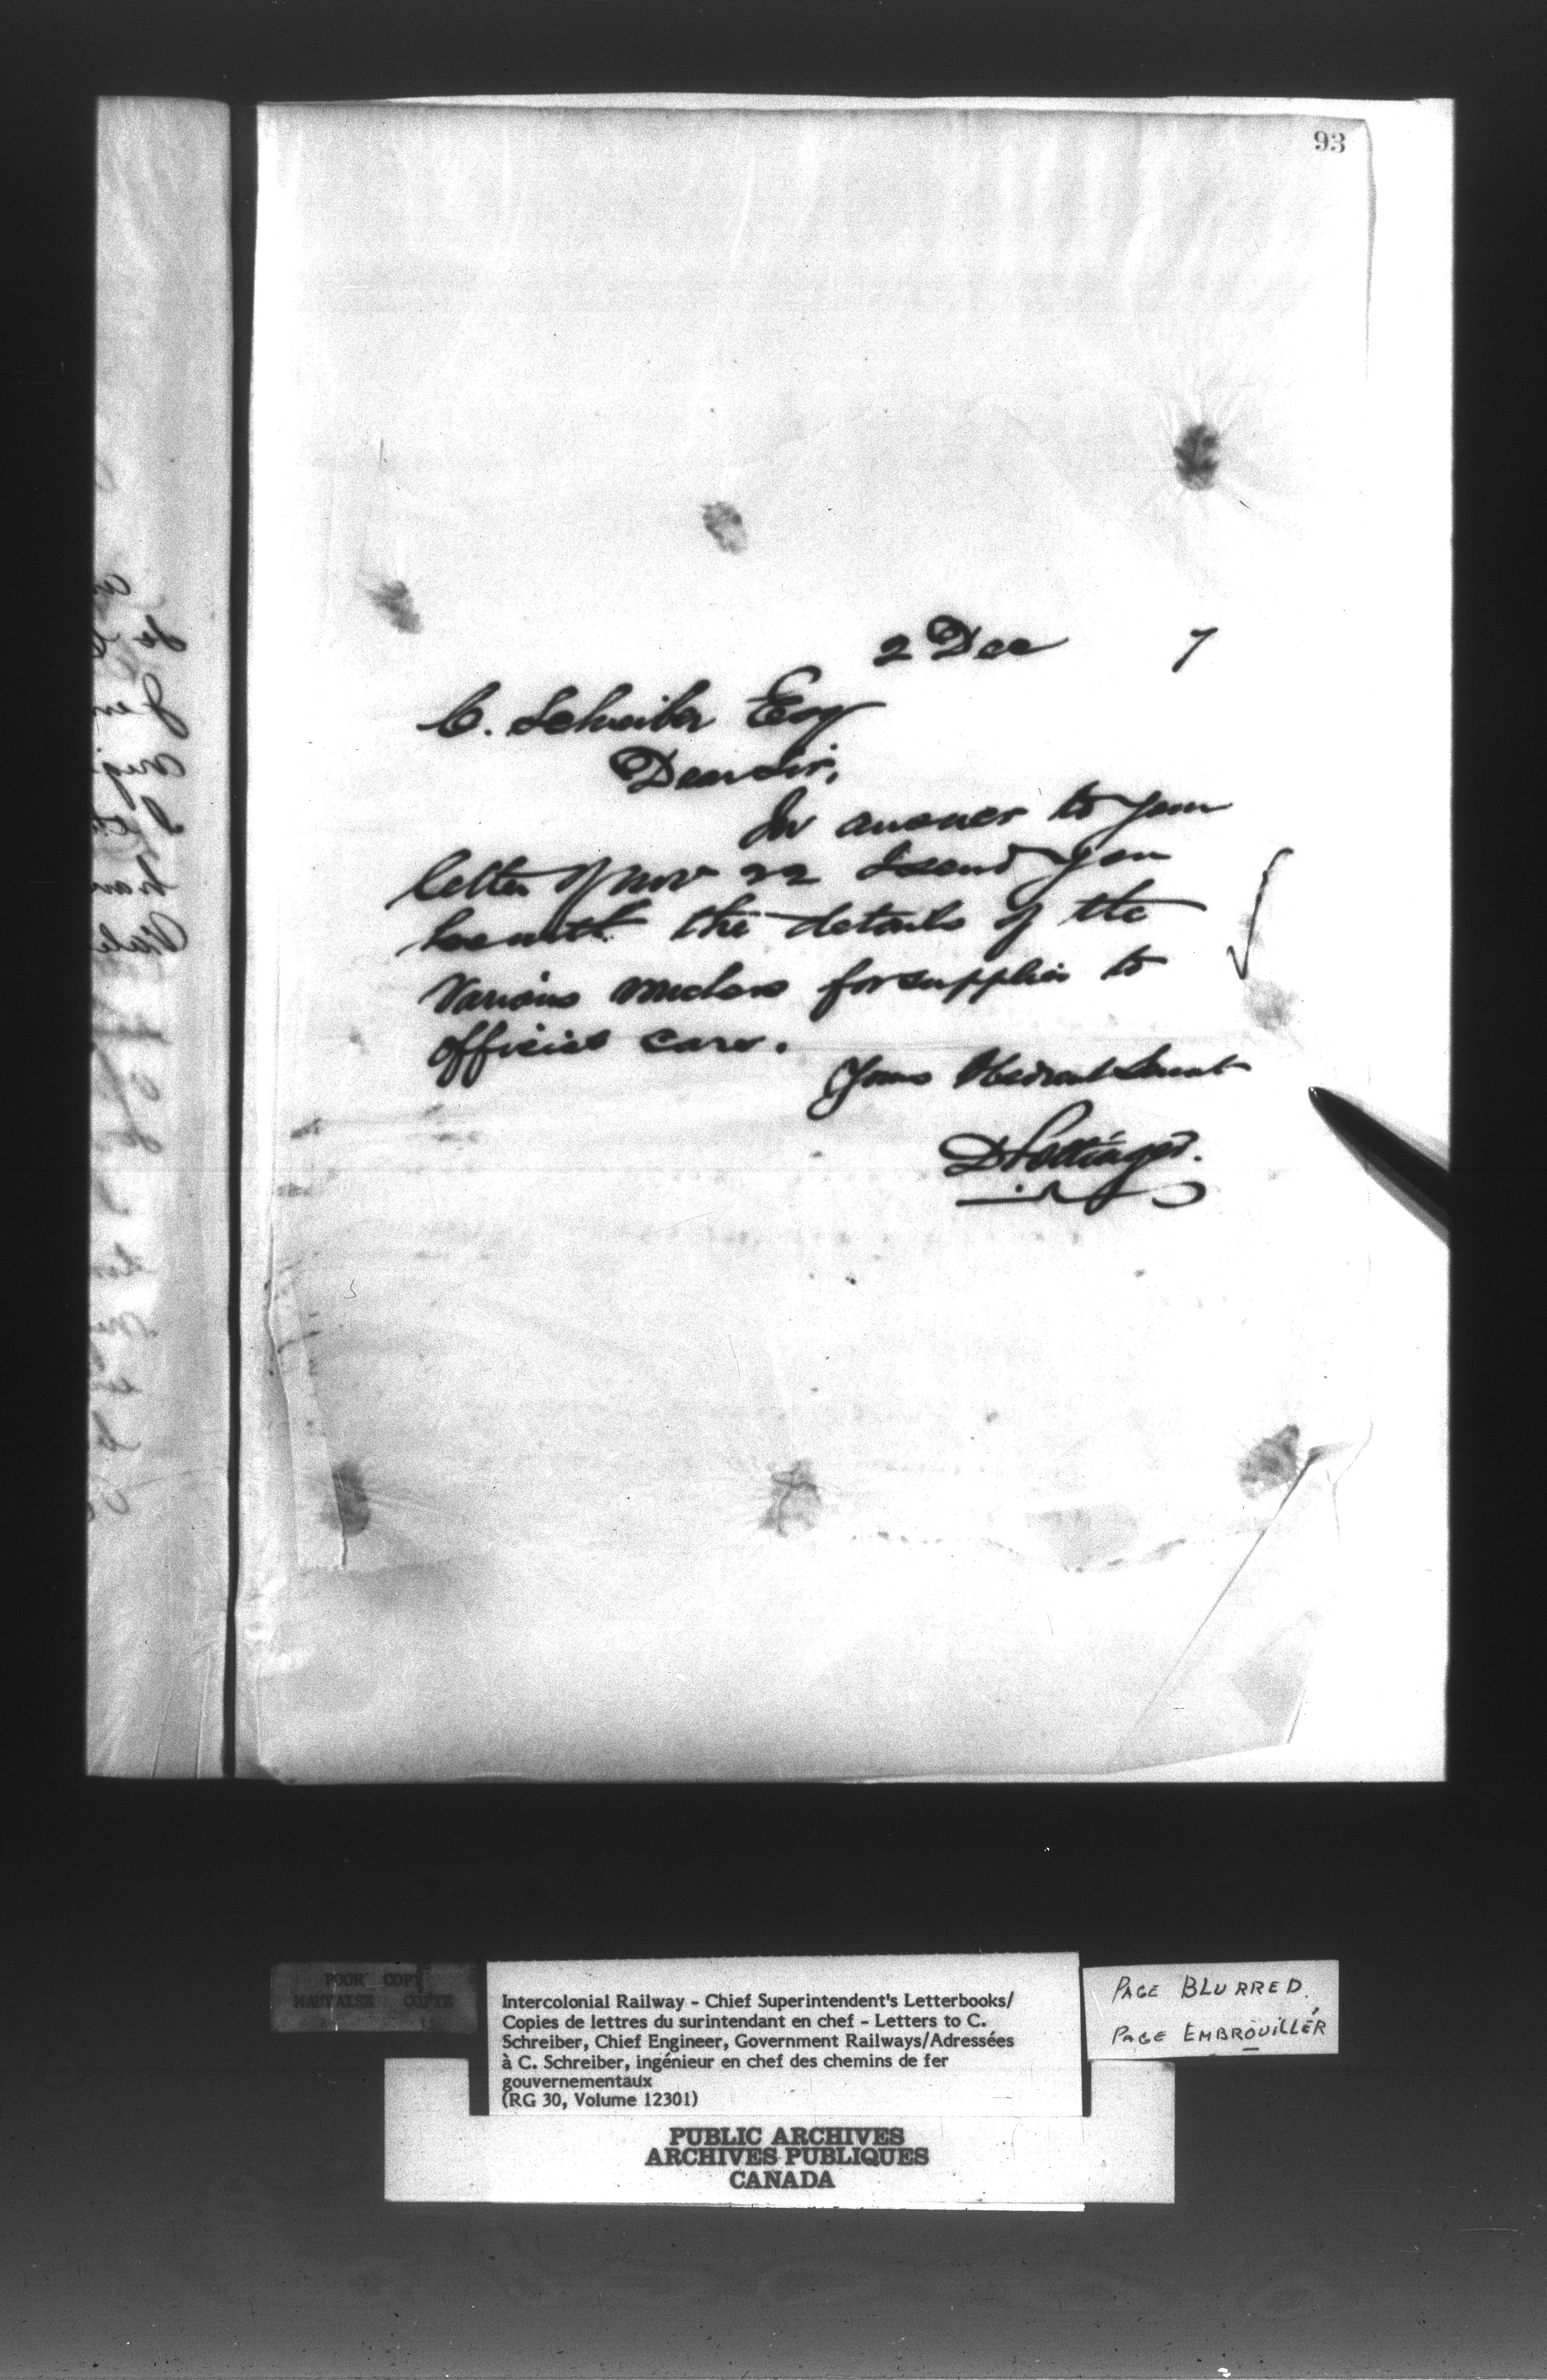 93
2 Dec 7
C. Schreiber Esq
Dear Sir,
In answer to your
letter of Nov 22 I send you
herewith the details of the
various orders for supplies to
official cars.
Yours Obedient Servant
D Pottinger.
POOR COPY
MAUVAISE COPIE
Intercolonial Railway - Chief Superintendent's Letterbooks/
Copies de lettres du surintendant en chef - Letters to C.
Schreiber, Chief Engineer, Government Railways/Adressées
à C. Schreiber, ingénieur en chef des chemins de fer
gouvernementaux
(RG 30, Volume 12301)
PAGE BLURRED.
PAGE EMBROUILLÉR
PUBLIC ARCHIVES
ARCHIVES PUBLIQUES
CANADA